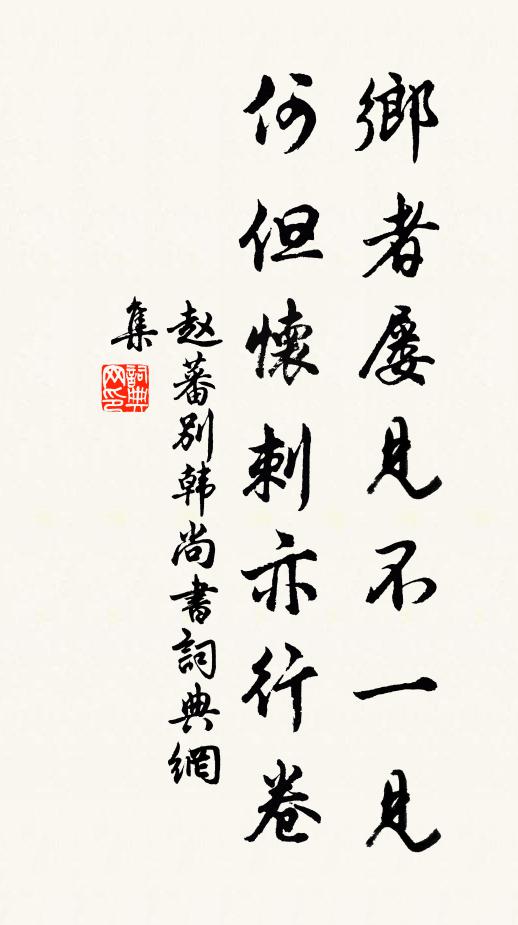 鄉者屢見不一見
何但懷刺亦行卷
赵蕃别韩尚書詞典網
集
詞典网印